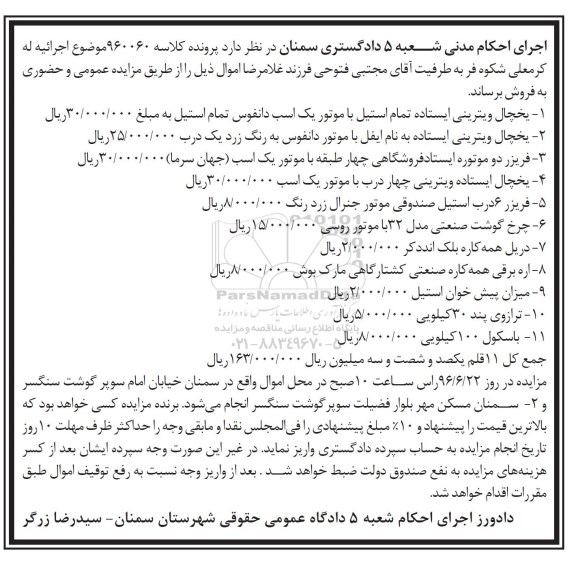 اجرای احکام مدنی شـــعبه ۵ دادگستری سمنان در نظر دارد پرونده کلاسه ۹۶۰۰۶۰موضوع اجرائیه له
کرمعلی شکوه فر به طرفیت آقای مجتبی فتوحی فرزند غلامرضا اموال ذیل را از طریق مزایده عمومی و حضوری
به فروش برساند.
۱- یخچال ویترینی ایستاده تمام استیل با موتور یک اسب دانفوس تمام استیل به مبلغ ۳۰/۰۰۰/۰۰۰ریال
۲- یخچال ویترینی ایستاده به نام ایفل با موتور دانفوس به رنگ زرد یک درب ۲۵/۰۰۰/۰۰۰ریال
۳-فریزر دو موتوره ایستادفروشگاهی چهار طبقه با موتور یک اسب (جهان سرما)۳۰/۰۰۰/۰۰۰ریال
۴- یخچال ایستاده ویترینی چهار درب با موتور یک اسب ۳۰/۰۰۰/۰۰۰ریال
۵- فریزر ۶درب استیل صندوقی موتور جنرال زرد رنگ ۸/۰۰۰/۰۰۰ریال
۶-چرخ گوشت صنعتی مدل ۳۲با موتور روسی ۱۵/۰۰۰/۰۰۰ریال
۷- دریل همه‌کاره بلک انددکر ۲/۰۰۰/۰۰۰ریال
۸-اره برقی همه‌کاره صنعتی کشتارگاهی مارک بوش ۸/۰۰۰/۰۰۰ریال
۹- میزان پیش خوان استیل ۲/۰۰۰/۰۰۰ریال
۱۰- ترازوی پند ۳۰کیلویی ۵/۰۰۰/۰۰۰ریال
۱۱- باسکول ۱۰۰کیلویی ۸/۰۰۰/۰۰۰ریال
جمع کل ۱۱قلم یکصد و شصت و سه میلیون ریال ۱۶۳/۰۰۰/۰۰۰ریال
مزایده در روز ۹۶/۶/۲۲راس ســاعت ۱۰صبح در محل اموال واقع در سمنان خیابان امام سوپر گوشت سنگسر
و ۲- ســمنان مسکن مهر بلوار فضیلت سوپر گوشت سنگسر انجام می‌شود. برنده مزایده کسی خواهد بود که
بالاترین قیمت را پیشنهاد و ۱۰٪ مبلغ پیشنهادی را فی‌المجلس نقدا و مابقی وجه را حداکثر ظرف مهلت ۱۰روز
تاریخ انجام مزایده به حساب سپرده دادگستری واریز نماید. در غیر این صورت وجه سپرده ایشان بعد از کسر
هزینه‌های مزایده به نفع صندوق دولت ضبط خواهد شــد . بعد از واریز وجه نسبت به رفع توقیف اموال طبق
مقررات اقدام خواهد شد.
دادورز اجرای احکام شعبه ۵ دادگاه عمومی حقوقی شهرستان سمنان- سیدرضا زرگر
ParsNamadData
پایگاه اطلاع رسانی مناقصه و مزایده
۰۲۱-۸۸۳۴۹۶۷۰-۵